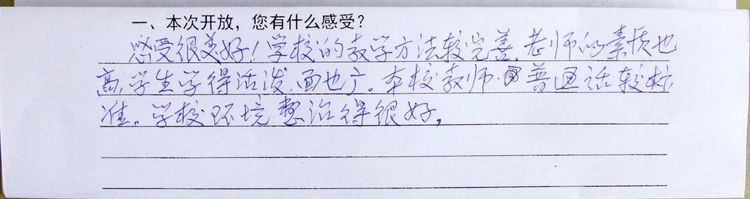 一、本次开放，您有什么感受？
感受很美好！学校的教学方法较完善，老师的素质也
高，学生学得活泼，面也广。本校教师普通话较标
准。学校环境整治得很好。